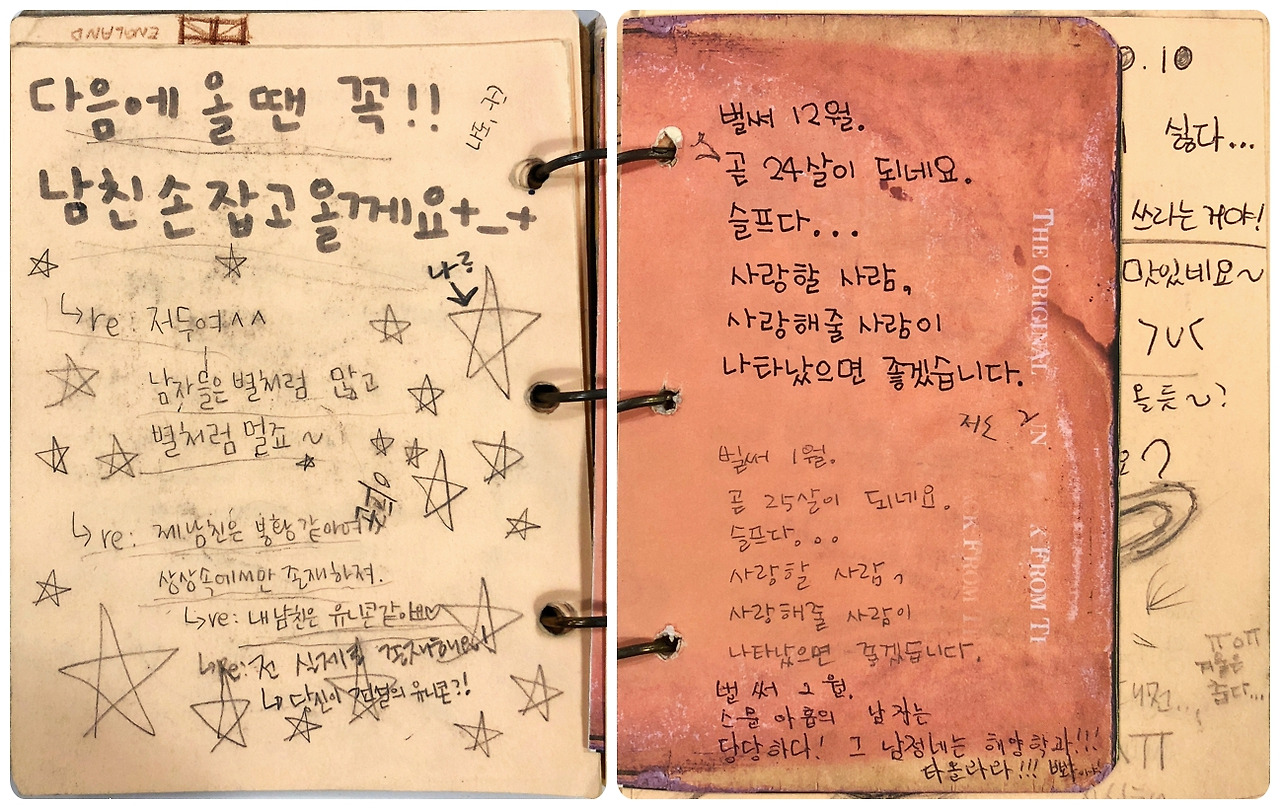 ENGLAND
다음에 올 땐 꼭!!
남친 손 잡고 올께요+_+
나?
↳re: 저두여^^
남자들은 별처럼 많고
별처럼 멀죠~
↳re: 제 남친은 봉황같아여
상상속에서만 존재하져.
↳re: 내 남친은 유니콘같아ㅃ♡
↳re: 전 실제로 존재해요!
↳ 당신이 전설의 유니콘?!
벌써 12월.
곧 24살이 되네요.
슬프다...
사랑할 사람,
사랑해줄 사람이
나타났으면 좋겠습니다.
저도 2
벌써 1월.
곧 25살이 되네요.
슬프다...
사랑할 사람,
사랑해줄 사람이
나타났으면 좋겠습니다.
벌써 2월.
스물 아홉의 남정는
당당하다! 그 남정네는 해양학과!!!
다올라라!!! 뽜
THE ORIGINAL UN
CK FROM TI
K FROM TI
0.10
싫다...
쓰라는 거야!
맛있네요~
올듯~?
ㅠㅇㅠ
겨울은
춥다...
대전...